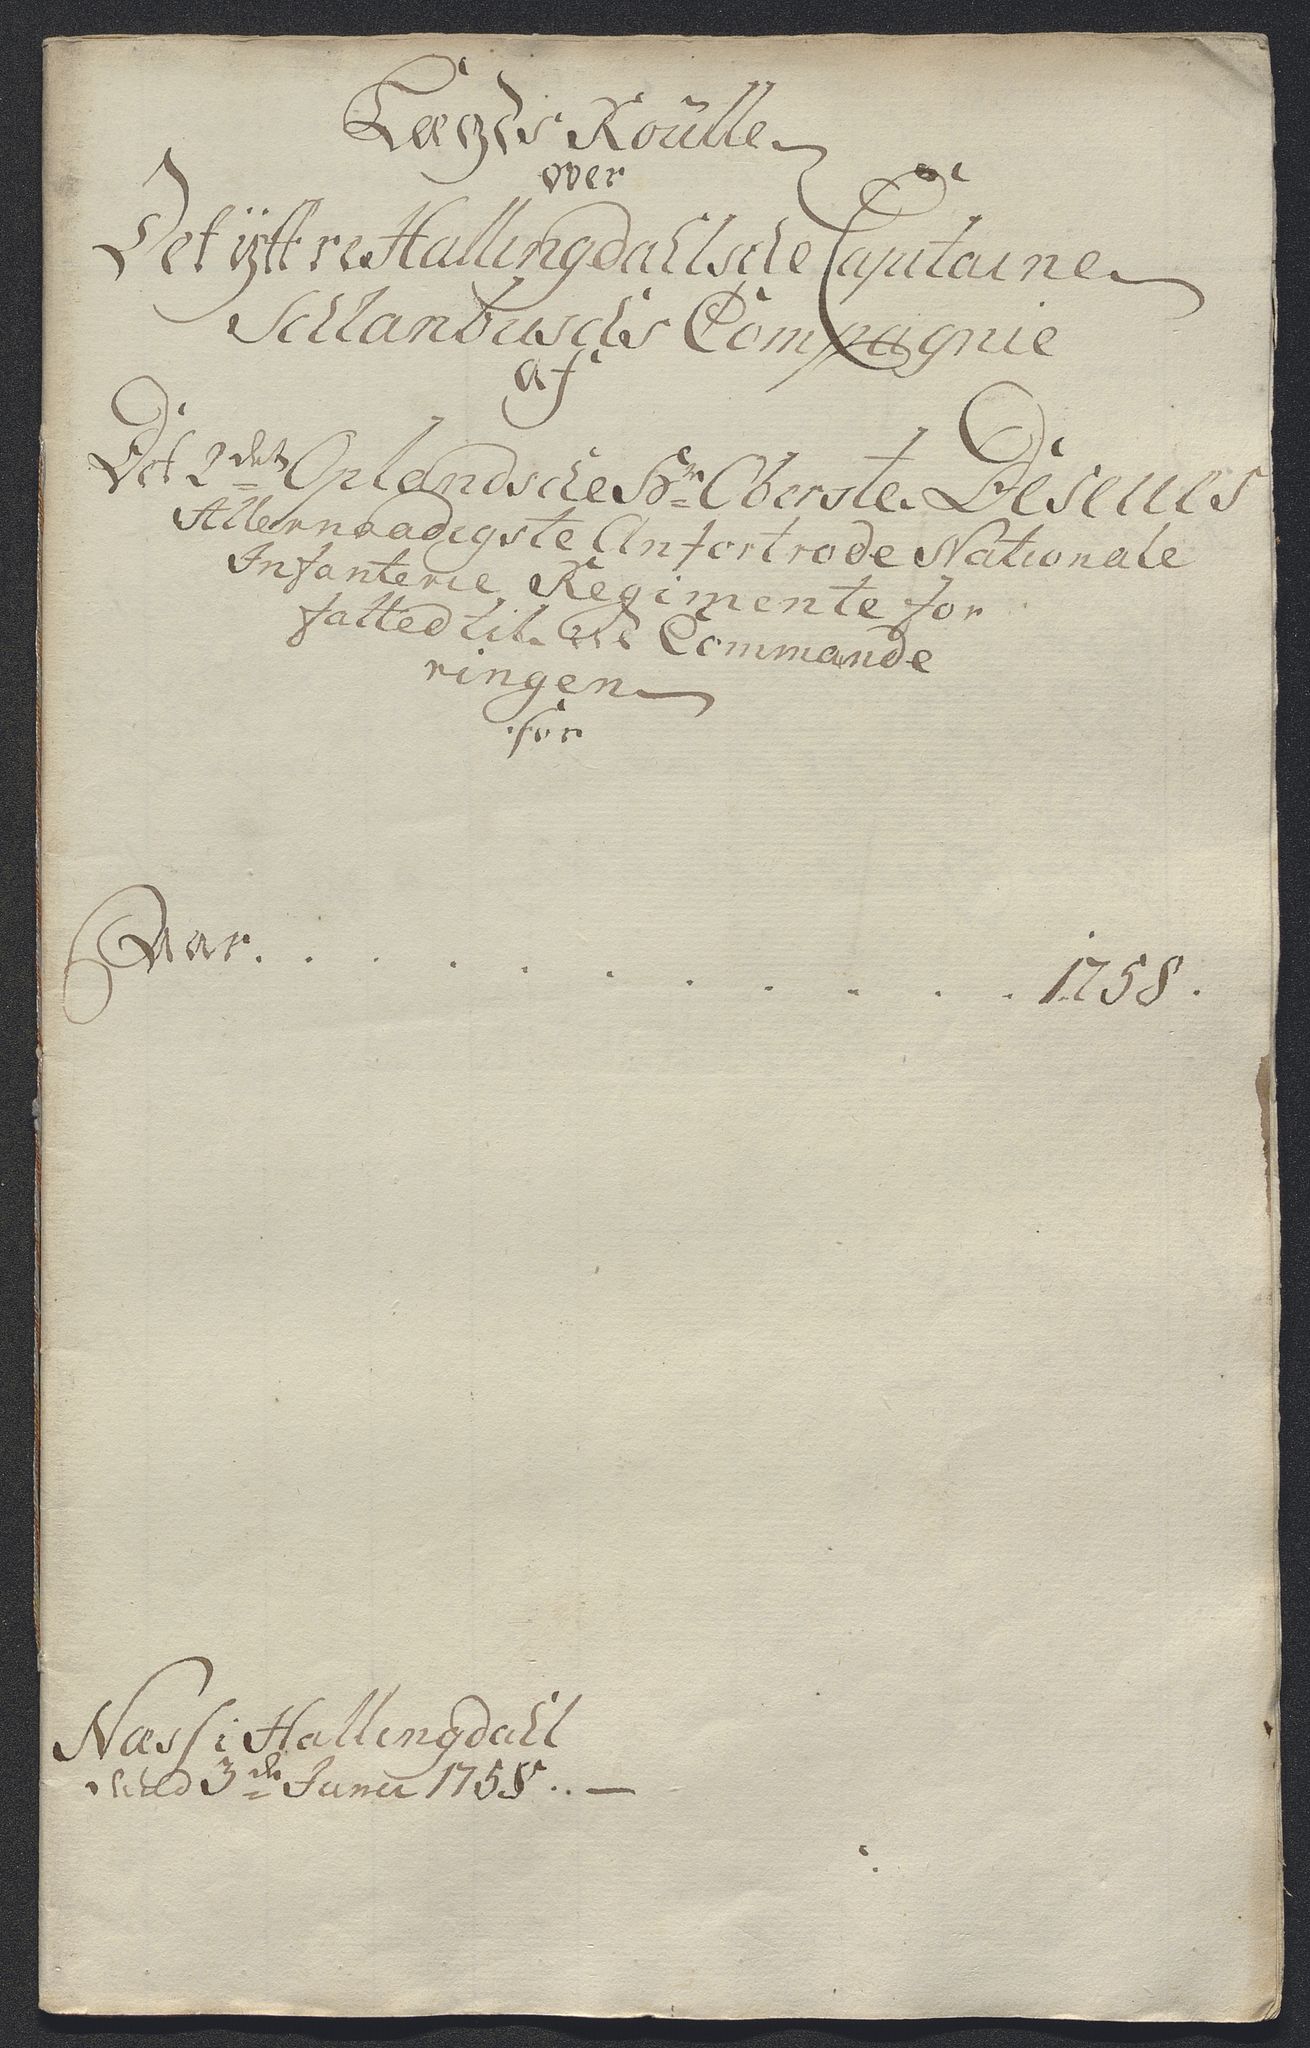 Lægds Roulle
over
Det yttre Hallingdahlsche Capitaine
Schlanbusch's Compagnie
af
Det 2det Oplandsche Hr Oberste Deseues
Allernaadigste Anfortrode Nationale
Infanterie Regimente for
fatted til Commande
ringen
for
Aar. . . . . . . . . . . 1758.
Næss i Hallingdahl
3de Junii 1758. . —